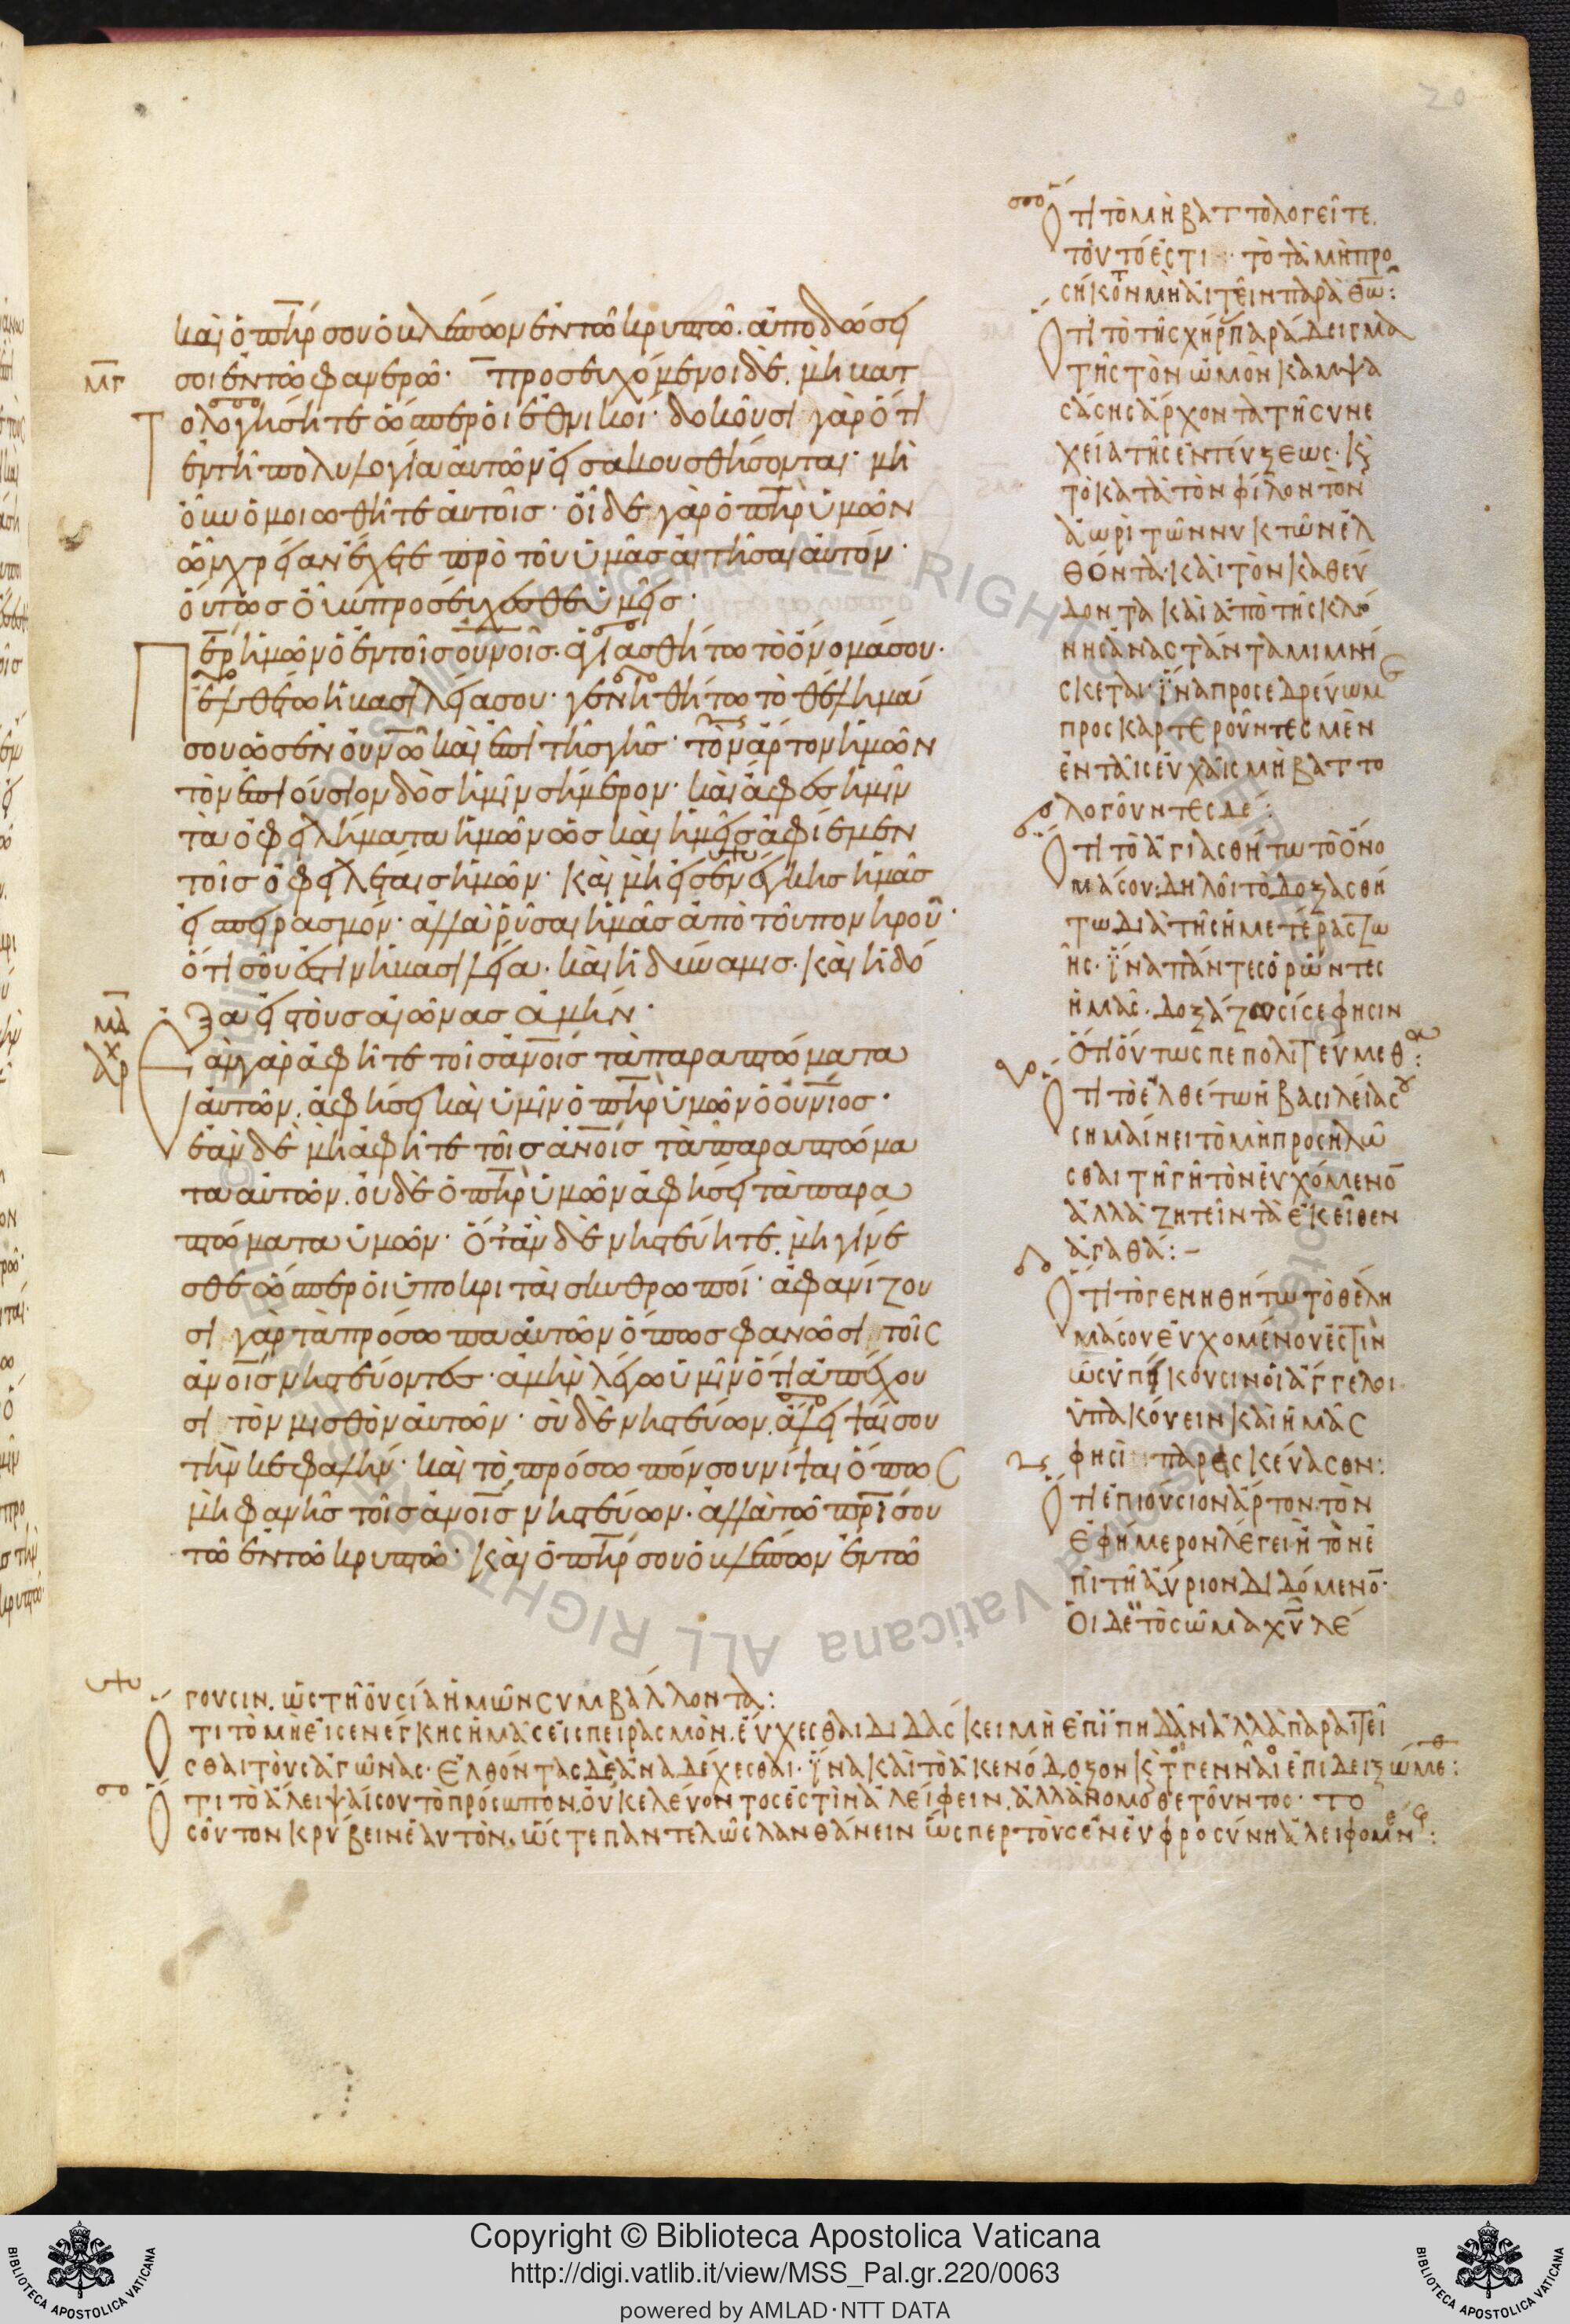 20
καὶ ὁ π̅η̅ρ̅ σου ὁ βλέπων ἐν τῶ κρυπτῶ. ἀποδώσει
μ̅γ̅ σοι ἐν τῶ φανερῶ· προσευχόμενοι δὲ. μὴ βατ
τολογήσητε ὥσπερ οἱ ἐθνικοί· δοκοῦσι γὰρ ὅτι
ἐν τῆ πολυλογία αὐτῶν εἰσακουσθήσονται· μὴ
οὖν ὁμοιωθῆτε αὐτοῖς· οἶδε γὰρ ὁ π̅η̅ρ̅ ὑμῶν
ὧν χρείαν ἔχετε πρὸ τοῦ ὑμᾶς αἰτῆσαι αὐτόν·
οὕτως οὖν προσεύχεσθε ὑμεῖς·
Π̅ε̅ρ̅ ἡμῶν ὁ ἐν τοῖς ο̅υ̅ν̅ο̅ι̅ς̅· ἁγιασθήτω τὸ ὄνομά σου·
ἐλθέτω ἡ βασιλεία σου· γενηθήτω τὸ θέλημά
σου ὡς ἐν ο̅υ̅ν̅ω̅ καὶ ἐπὶ τῆς γῆς· τὸν ἄρτον ἡμῶν
τὸν ἐπιούσιον δὸς ἡμῖν σήμερον· καὶ ἄφες ἡμῖν
τὰ ὀφειλήματα ἡμῶν ὡς καὶ ἡμεῖς ἀφίεμεν
τοῖς ὀφειλέταις ἡμῶν· καὶ μὴ εἰσενέγκης ἡμᾶς
εἰς πειρασμόν· ἀλλὰ ῥῦσαι ἡμᾶς ἀπὸ τοῦ πονηροῦ·
ὅτι σοῦ ἐστιν ἡ βασιλεία· καὶ ἡ δύναμις· καὶ ἡ δό
μ̅δ̅ ξα εἰς τοὺς αἰῶνας ἀμήν·
Ἐὰν γὰρ ἀφῆτε τοῖς α̅ν̅ο̅ι̅ς̅ τὰ παραπτώματα
αὐτῶν. ἀφήσει καὶ ὑμῖν ὁ π̅η̅ρ̅ ὑμῶν ὁ ο̅υ̅ν̅ι̅ο̅ς̅·
ἐὰν δὲ μὴ ἀφῆτε τοῖς α̅ν̅ο̅ι̅ς̅ τὰ παραπτώμα
τα αὐτῶν. οὐδὲ ὁ π̅η̅ρ̅ ὑμῶν ἀφήσει τὰ παρα
πτώματα ὑμῶν· ὅταν δὲ νηστεύητε. μὴ γίνε
σθε ὥσπερ οἱ ὑποκριταὶ σκυθρωποί· ἀφανίζου
σι γὰρ τὰ πρόσωπα αὐτῶν ὅπως φανῶσι τοῖς
α̅ν̅ο̅ι̅ς̅ νηστεύοντες· ἀμὴν λέγω ὑμῖν ὅτι ἀπέχου
σι τὸν μισθὸν αὐτῶν· σὺ δὲ νηστεύων. ἄλειψαί σου
τὴν κεφαλήν· καὶ τὸ πρόσωπόν σου νίψαι ὅπως
μὴ φανῆς τοῖς α̅ν̅ο̅ι̅ς̅ νηστεύων· ἀλλὰ τῶ π̅ρ̅ι̅ σου
τῶ ἐν τῶ κρυπτῶ· καὶ ὁ π̅η̅ρ̅ σου ὁ βλέπων ἐν τῶ
Ὅτι τὸ μὴ βαττολογεῖτε.
τουτό ἐστι· τὸ τὰ μὴ προ
σήκοντα μὴ αἰτεῖν παρὰ θ̅ω̅:
Ὅτι τὸ τῆς χήρ παράδειγμα
τῆς τὸν ὠμὸν κάμψα
σάσης ἄρχοντα τῆ συνε
χεία τῆς ἐντεύξεως· κ̀
τὸ κατὰ τὸν φίλον τὸν
ἀωρὶ τῶν νυκτῶν ἐλ
θόντα· καὶ τὸν καθεύ
δοντα καὶ ἀπὸ τῆς κλί
νης ἀναστάντα μιμνή
σκεται· ἵνα προσεδρεύωμ
προσκαρτεροῦντες μὲν
ἐν ταῖς εὐχαῖς μὴ βαττο
λογοῦντες δέ:
Ὅτι τὸ ἁγιασθήτω τὸ ὄνο
μά σου: δηλοῖ τὸ δοξασθή
τω διὰ τῆς ἡμετέρας ζω
ῆς· ἵνα πάντες ὁρῶντες
ἡμᾶς. δοξάζουσί σε φησιν
ὅτι οὕτως πεπολιτεύμεθα:
Ὅτι τὸ ἐλθέτω ἡ βασιλεία σου
σημαίνει τὸ μὴ προσηλῶ
σθαι τῆ γῆ τὸν εὐχόμενο̅
ἀλλὰ ζητεῖν τὰ ἐκεῖθεν
ἀγαθά:–
Ὅτι τὸ γενηθήτω τὸ θέλη
μά σου εὐχομένου ἐστὶν
ὡς ὑπήκουσιν οἱ ἄγγελοι
ὑπακούειν καὶ ἡμᾶς
φησὶ παρεσκεύασθν:
Ὅτι ἐπιούσιον ἄρτον· τὸν
ἐφήμερον λέγει ἢ τὸν ἐ
πὶ τῆ αὔριον διδόμενο̅·
οἱ δὲ τὸ σῶμα χ̅υ̅ λέ
γουσιν. ὡς τῆ οὐσία ἡμῶν συμβάλλοντα:
Ὅτι τὸ μὴ εἰσενέγκης ἡμᾶς εἰς πειρασμὸν. εὔχεσθαι διδάσκει μὴ ἐπιπηδᾶν ἀλλὰ παραιτεῖ
σθαι τοὺς ἀγῶνας· ἐλθόντας δὲ ἀναδέχεσθαι· ἵνα καὶ τὸ ἀκενόδοξον κ̀ τὸ γενναῖον ἐπιδειξώμεθ:
Ὅτι τὸ ἄλειψαί σου τὸ πρόσωπον, οὐ κελεύοντός ἐστιν ἀλείφειν. ἀλλὰ νομοθετοῦντος· το
σοῦτον κρύβειν ἑαυτὸν. ὥστε παντελῶς λανθάνειν ὥσπερ τοὺς ἐν εὐφροσύνη ἀλειφομέν:
Copyright © Biblioteca Apostolica Vaticana
http://digi.vatlib.it/view/MSS_Pal.gr.220/0063
powered by AMLAD·NTT DATA
BIBLIOTECA APOSTOLICA VATICANA
BIBLIOTECA APOSTOLICA VATICANA